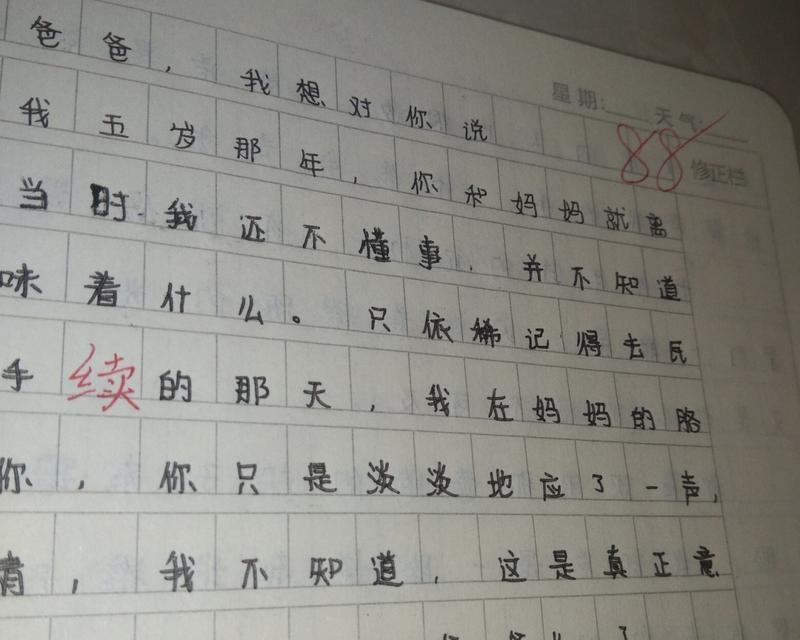 星期: 天气:
88 修正栏
爸爸，我想对你说
我五岁那年，你和妈妈就离
当时我还不懂事，并不知道
味着什么。只依稀记得去民
手续的那天，我在妈妈的胳
你，你只是淡淡地应了一声，
情，我不知道，这是真正意